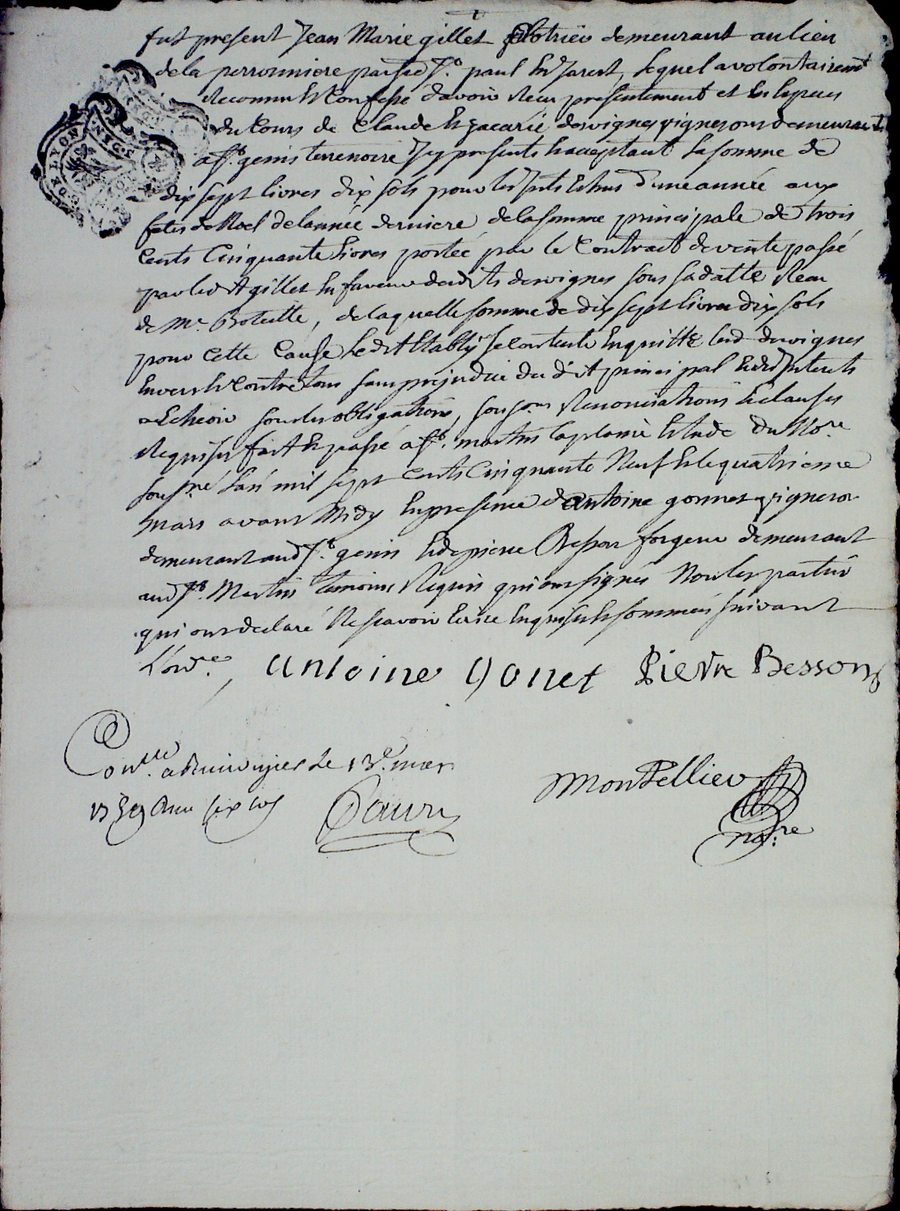 fut present Jean Marie gillet demeurant au lieu
de la perronniere parsse St. paul En Jarest, Lequel a volontairemt
Reconnu Et Confessé d'avoir Reçu présentement et En Especes
du Cours de Claude Et Zacarie desvignes vignerons demeurants
a St. genis terrenoire Icy presents Et acceptant La somme de
dix sept Livres dix sols pour Les Echus d'une année aux
fetes de Noel de L'année derniere de La somme principale de trois
Cents Cinquante Livres portée par Le Contract de vente passé
par Led. gillet En faveur desdts desvignes sous sa datte Reçu
de Me. , de Laquelle somme de dix sept Livres dix sols
pour Cette Cause Ledit Etably se contente En quitte Lesd. desvignes
Envers Et Contre tous sans prejudice du dit principal Et des Interets
a Echeoir sous Les obligations, Renonciations Et clauses
Requises fait Et passé a St. martin La plaine Etude du No.re
sousné L'an mil sept Cents Cinquante Neuf Et Le quatrieme
mars avant Midy En presence d'antoine gonnet vigneron
demeurant aud St. genis Et de pierre Besson forgeur demeurant
aud St. Martin temoins Requis qui ont signés Non Les parties
qui ont declaré Ne scavoir Ecrire Enquis Et sommées suivant
L'ord.e antoine gonet Pierre Besson
Con.lle a le 13e. mars
1759 Reçu six sols
Montellier
no.re